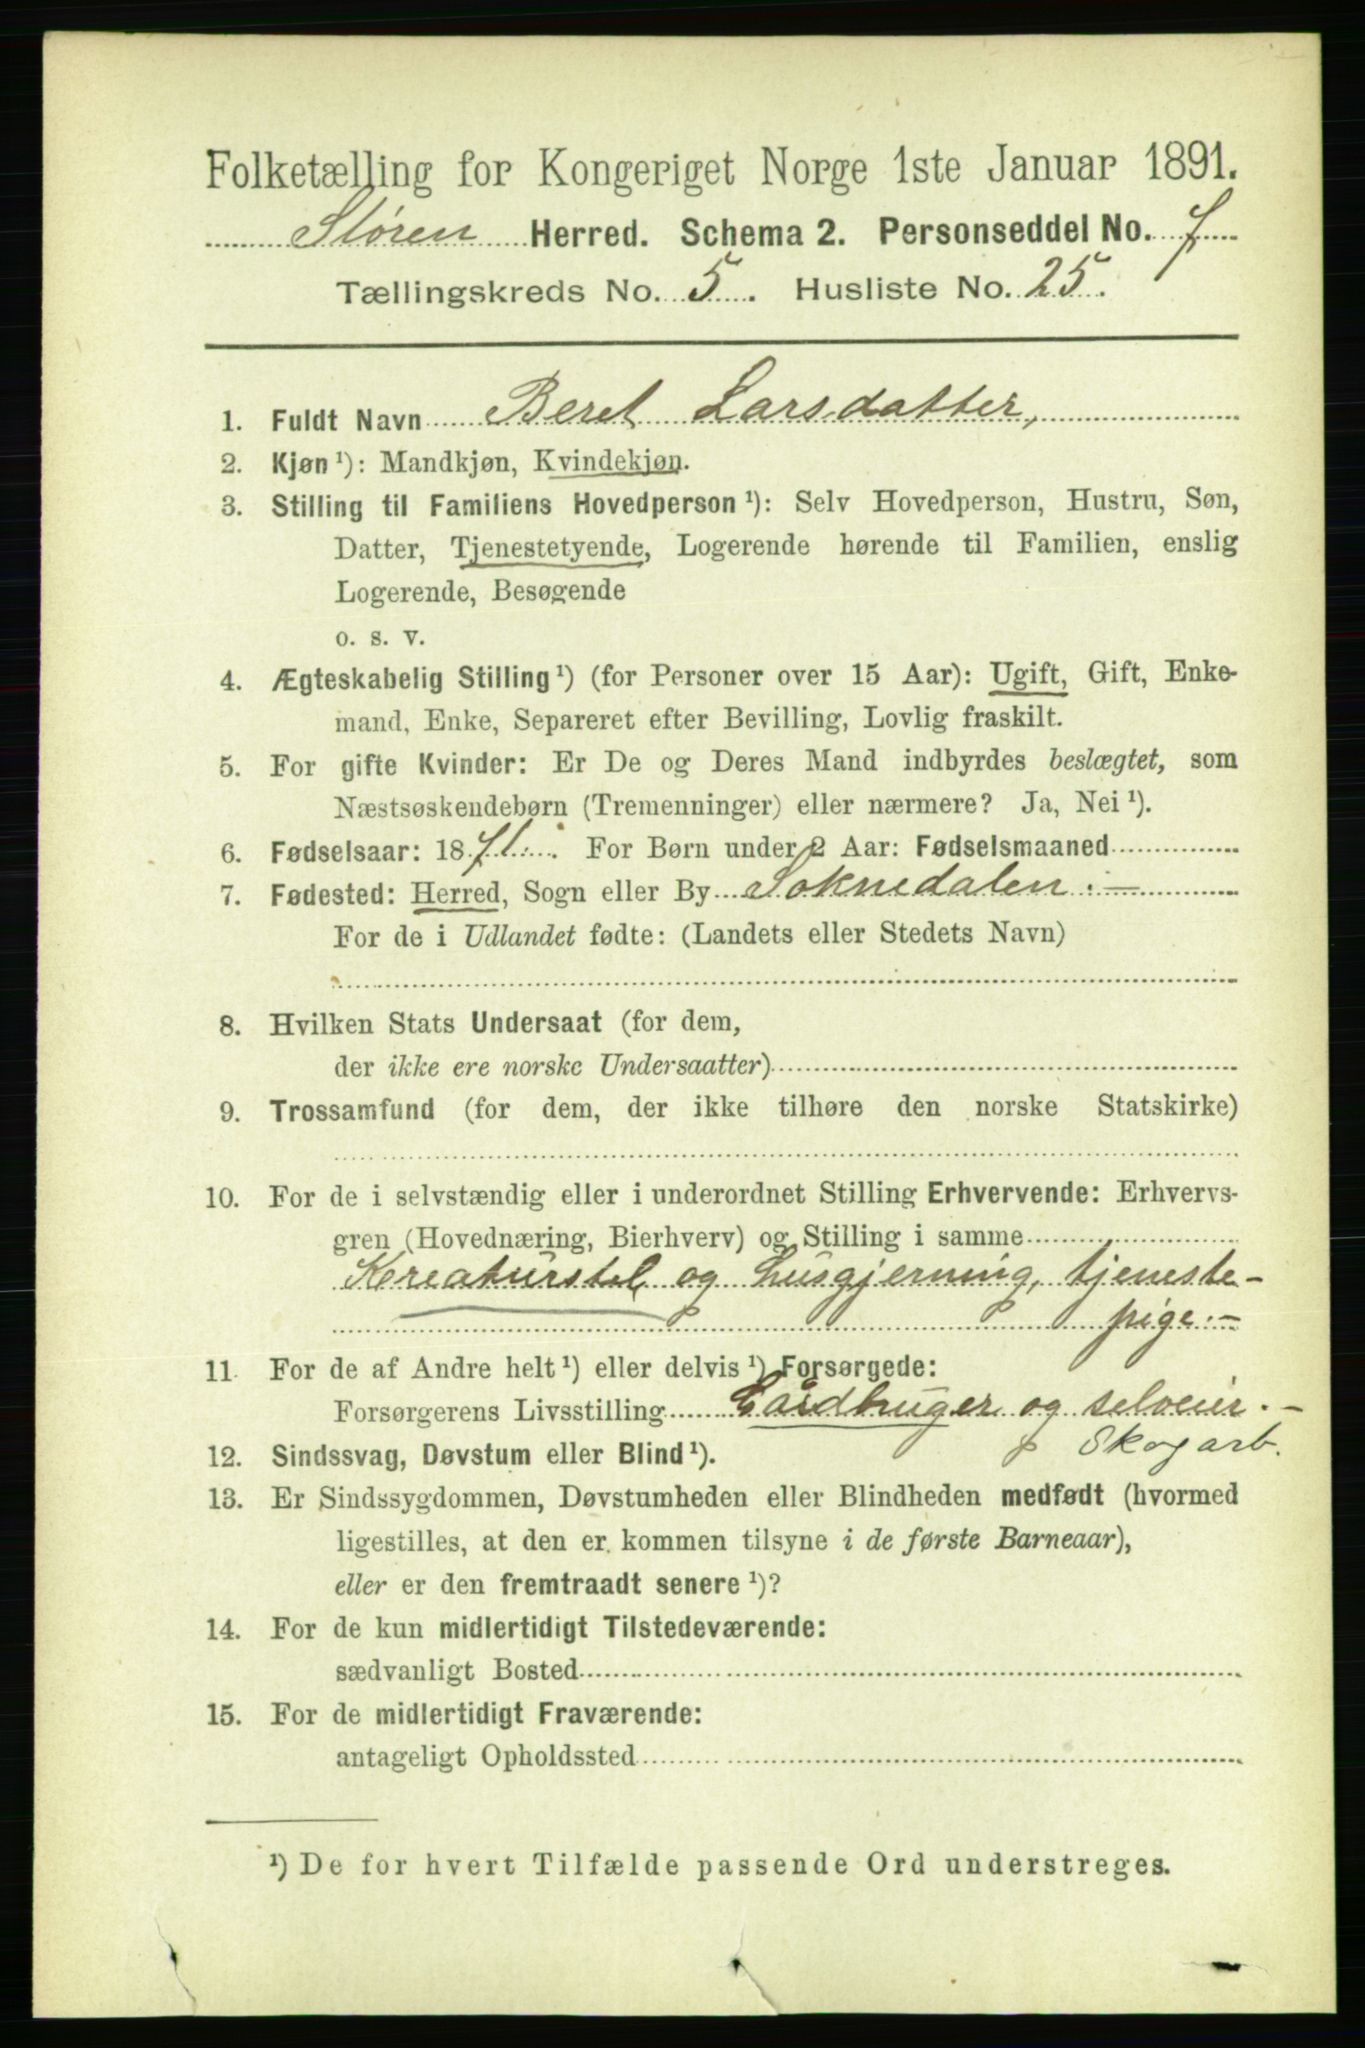 Folketælling for Kongeriget Norge 1ste Januar 1891.
Støren Herred. Schema 2. Personseddel No. 7
Tællingskreds No. 5. Husliste No. 25.
1. Fuldt Navn Beret Larsdatter,
2. Kjøn ¹): Mandkjøn, Kvindekjøn.
3. Stilling til Familiens Hovedperson ¹): Selv Hovedperson, Hustru, Søn,
Datter, Tjenestetyende, Logerende hørende til Familien, enslig
Logerende, Besøgende
o. s. v.
4. Ægteskabelig Stilling ¹) (for Personer over 15 Aar): Ugift, Gift, Enke-
mand, Enke, Separeret efter Bevilling, Lovlig fraskilt.
5. For gifte Kvinder: Er De og Deres Mand indbyrdes beslægtet, som
Næstsøskendebørn (Tremenninger) eller nærmere? Ja, Nei ¹).
6. Fødselsaar: 1871. For Børn under 2 Aar: Fødselsmaaned
7. Fødested: Herred, Sogn eller By Soknedalen.—
For de i Udlandet fødte: (Landets eller Stedets Navn)
8. Hvilken Stats Undersaat (for dem,
der ikke ere norske Undersaatter)
9. Trossamfund (for dem, der ikke tilhøre den norske Statskirke)
10. For de i selvstændig eller i underordnet Stilling Erhvervende: Erhvervs-
gren (Hovednæring, Bierhverv) og Stilling i samme
Kreaturstel og husgjerning, tjeneste-
pige.—
11. For de af Andre helt ¹) eller delvis ¹) Forsørgede:
Forsørgerens Livsstilling Gårdbruger og selveier.—
Skogarb.
12. Sindssvag, Døvstum eller Blind ¹).
13. Er Sindssygdommen, Døvstumheden eller Blindheden medfødt (hvormed
ligestilles, at den er kommen tilsyne i de første Barneaar),
eller er den fremtraadt senere ¹)?
14. For de kun midlertidigt Tilstedeværende:
sædvanligt Bosted
15. For de midlertidigt Fraværende:
antageligt Opholdssted
¹) De for hvert Tilfælde passende Ord understreges.